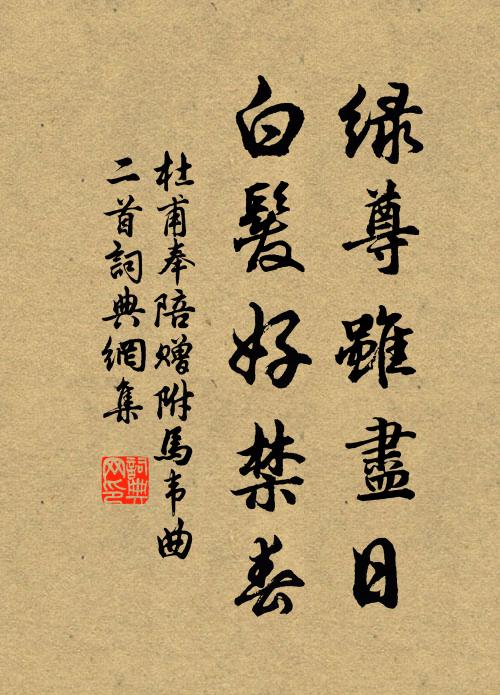 绿尊雖盡日
白髮好禁春
杜甫奉陪赠附馬韦曲
二首詞典網集
詞典
网印